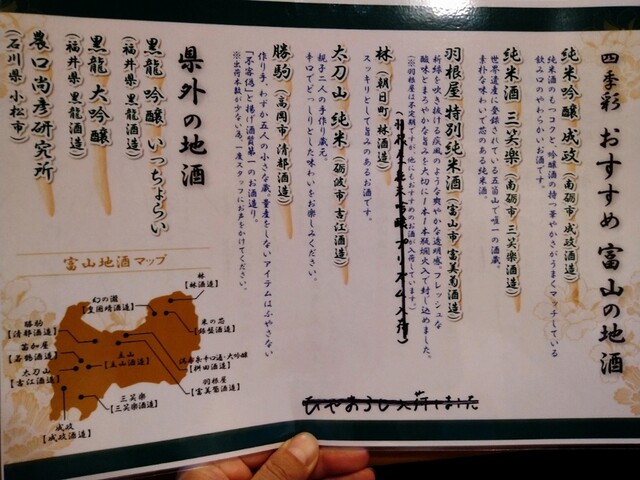 四季彩 おすすめ 富山の地酒
純米吟醸 成政（南砺市 成政酒造）
純米酒のもつコクと、吟醸酒の持つ華やかさがうまくマッチしている
飲み口のやわらかいお酒です。
純米酒 三笑楽（南砺市 三笑楽酒造）
世界遺産に登録されている五箇山で唯一の酒蔵。
素朴な味わいで芯のある純米酒。
羽根屋 特別純米酒（富山市 富美菊酒造）
斬絃を吹き抜ける疾風のような爽やかな透明感。フレッシュな
酸味とまろやかな旨みを大切に1本1本瓶燗火入で封じ込めました。
（※羽根屋は不定期ですが、他にもおすすめのお酒が入荷しています。）
林（朝日町 林酒造）
スッキリとして旨みのあるお酒です。
太刀山 純米（砺波市 吉江酒造）
親子二人の手作り蔵元。
辛口でどっしりとした味わいをお楽しみください。
勝駒（高岡市 清都酒造）
作り手、わずか五人の小さな蔵。量産をしないアイテムはふやさない
「不容偽」と掲げ酒質第一のお酒造り。
※出荷本数が少ない為、一度スタッフにお声をかけてください。
県外の地酒
黒龍 吟醸 いっちょらい
（福井県 黒龍酒造）
黒龍 大吟醸
（福井県 黒龍酒造）
農口尚彦研究所
（石川県 小松市）
ひやおろし入荷しました
富山地酒マップ
林
【林酒造】
幻の瀧
【皇国晴酒造】
米の芯
【銀盤酒造】
勝駒
【清都酒造】
苗加屋
【若鶴酒造】
立山
【立山酒造】
満寿泉辛口遍・大吟醸
【桝田酒造】
太刀山
【吉江酒造】
羽根屋
【富美菊酒造】
三笑楽
【三笑楽酒造】
成政
【成政酒造】